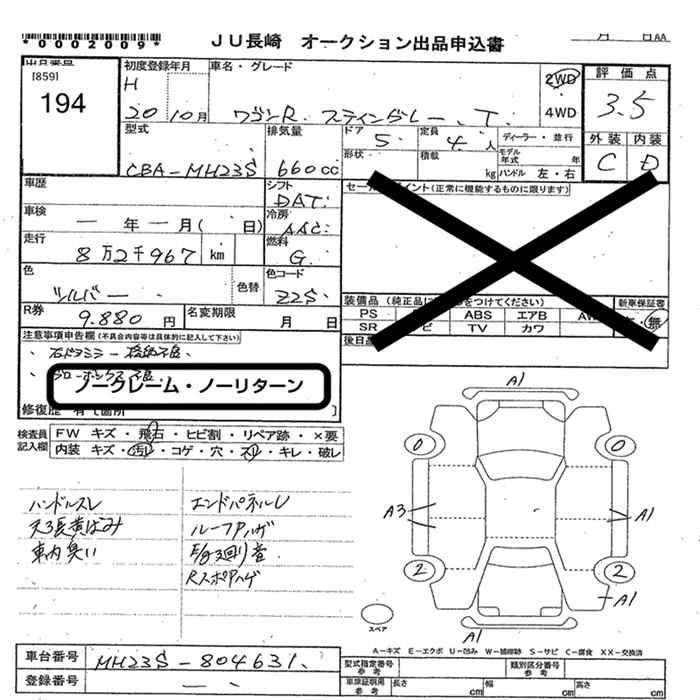 *0002009*
JU長崎 オークション出品申込書
月 日AA
出品番号
[859]
194
初度登録年月
H
20年10月
車名・グレード
ワゴンR スティングレー T
2WD
4WD
評価点
3.5
外装 内装
C D
型式
CBA-MH23S
排気量
660cc
ドア
5
定員
4人
ディーラー・並行
形状
積載
kg
モデル年式 年
ハンドル 左・右
車歴
シフト
DAT
セールスポイント(正常に機能するものに限ります)
車検
ー年ー月( 日)
冷房
AAC
走行
8万2千967 km
燃料
G
色
シルバー
色替
色コード
Z2S
R券
9.880円
名変期限
月 日
装備品(純正品に○をつけてください)
新車保証書
・無
PS ABS エアB AW
SR ナビ TV カワ
後日品
注意事項申告欄(不具合内容等は具体的に記入して下さい)
・右ドアミラー格納不良
・グローボックス不良
ノークレーム・ノーリターン
修復歴 有(箇所 )
検査員記入欄
FW キズ・飛石・ヒビ割・リペア跡・×要
内装 キズ・汚れ・コゲ・穴・スレ・キレ・破レ
ハンドルスレ
天井黄ばみ
車内臭い
エンドパネルU
ルーフハゲ
E/g 廻り音
RスポAハゲ
A1
0 0
A3 A1
2 2
A1
スペア
A-キズ E-エクボ U-凹み W-補修跡 S-サビ C-腐食 XX-交換済
車台番号
MH23S-804631
登録番号
型式指定番号 参考
類別区分番号 参考
車庫証明用参考
長さ cm
幅 cm
高さ cm